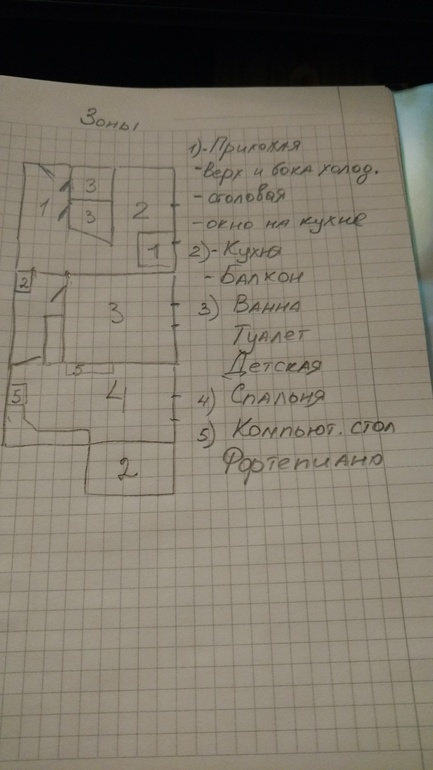 Зоны
1)-Прихожая
-Верх и бока холод.
-столовая
-окно на кухне
2)-Кухня
-Балкон
3) Ванна
Туалет
Детская
4) Спальня
5) Компьют. стол
Фортепиано
3
1
3
2
1
2
3
5
5
4
2